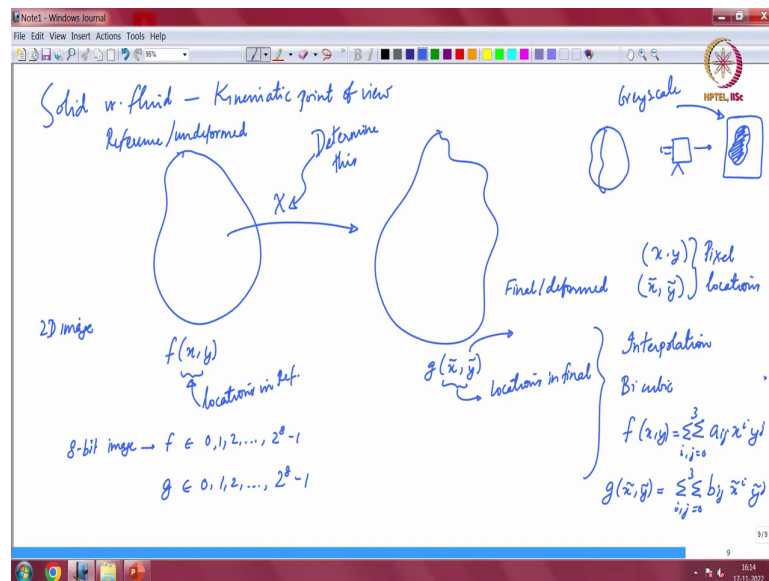 Note1 - Windows Journal
File Edit View Insert Actions Tools Help
96%
NPTEL, IISc
Solid vs. fluid – Kinematic point of view
Reference/undeformed
Determine this
χ
Greyscale
Final/deformed
(x, y) } Pixel
(x̃, ỹ) } locations
2D image
f(x, y)
locations in Ref.
g(x̃, ỹ)
locations in final
Interpolation
Bi cubic
f(x,y) = Σ Σ^3_{i,j=0} a_ij x^i y^j
g(x̃,ỹ) = Σ Σ^3_{i,j=0} b_ij x̃^i ỹ^j
8-bit image → f ∈ 0, 1, 2, ..., 2^8 - 1
g ∈ 0, 1, 2, ..., 2^8 - 1
9/9
9
16:14
17-11-2022